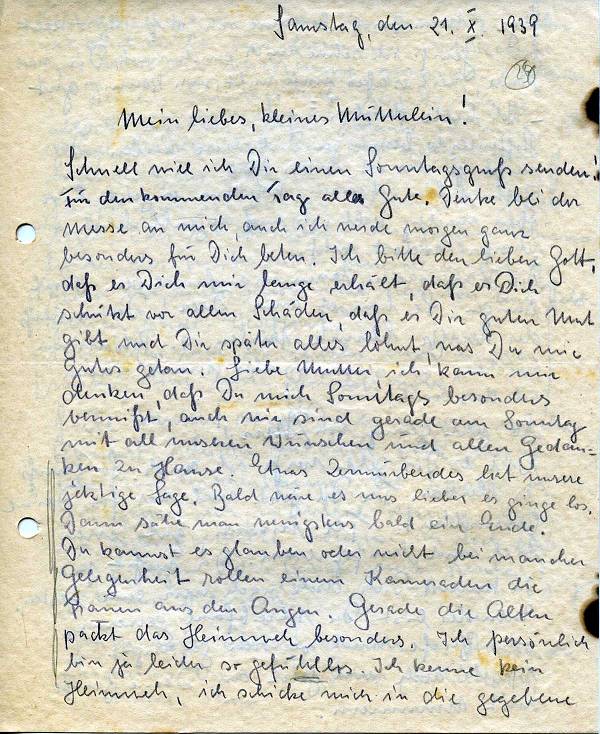 Samstag, den 21. X. 1939
Mein liebes, kleines Mütterlein!
Schnell will ich Dir einen Sonntagsgruß senden!
Für den kommenden Tag alles Gute. Denke bei der
Messe an mich, auch ich werde morgen ganz
besonders für Dich beten. Ich bitte den lieben Gott,
daß er Dich mir lange erhält, daß er Dich
schützt vor allen Schäden, daß er Dir guten Mut
gibt und Dir später alles lohnt, was Du mir
Gutes getan. Liebe Mutter ich kann mir
denken, daß Du mich Sonntags besonders
vermißt, auch wir sind gerade am Sonntag
mit all unseren Wünschen und allen Gedan-
ken zu Hause. Etwas Zermürbendes hat unsere
jetzige Lage. Bald wäre es uns lieber es ginge los.
Dann sähe man wenigstens bald ein Ende.
Du kannst es glauben oder nicht bei mancher
Gelegenheit rollen einem Kameraden die
Tränen aus den Augen. Gerade die Alten
packt das Heimweh besonders. Ich persönlich
bin ja leider so gefühllos. Ich kenne kein
Heimweh, ich schicke mich in die gegebene